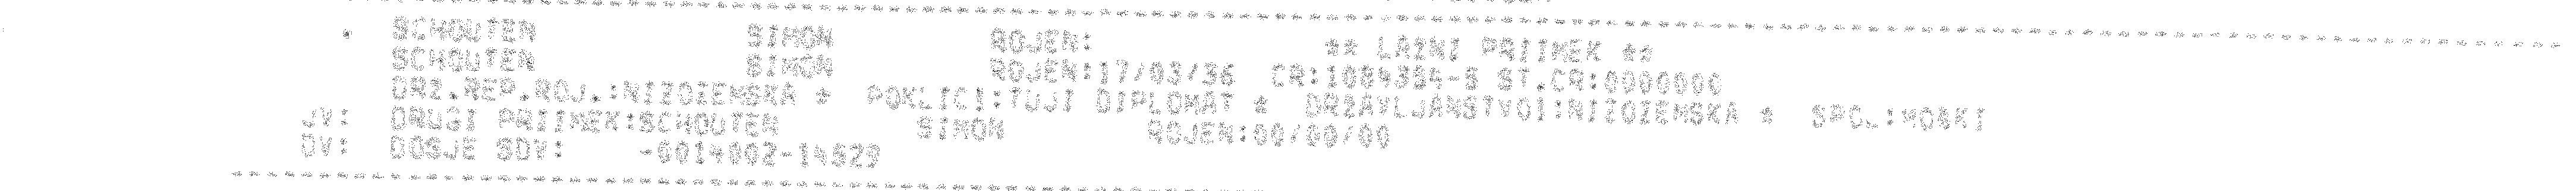 * SCHOUTEN SIMON ROJEN: ** LAZNI PRIIMEK **
SCHOUTEN SIMON ROJEN:17/03/36 CR:1089354-S ST.CR:0000000
DRZ.REP.ROJ.:NIZOZEMSKA * POKLICI:TUJI DIPLOMAT * DRZAVLJANSTVO1:NIZOZEMSKA * SPOL:MOSKI
JV: DRUGI PRIIMEK:SCHOUTEN SIMON ROJEN:00/00/00
DV: DOSJE SDV: -6014002-14529